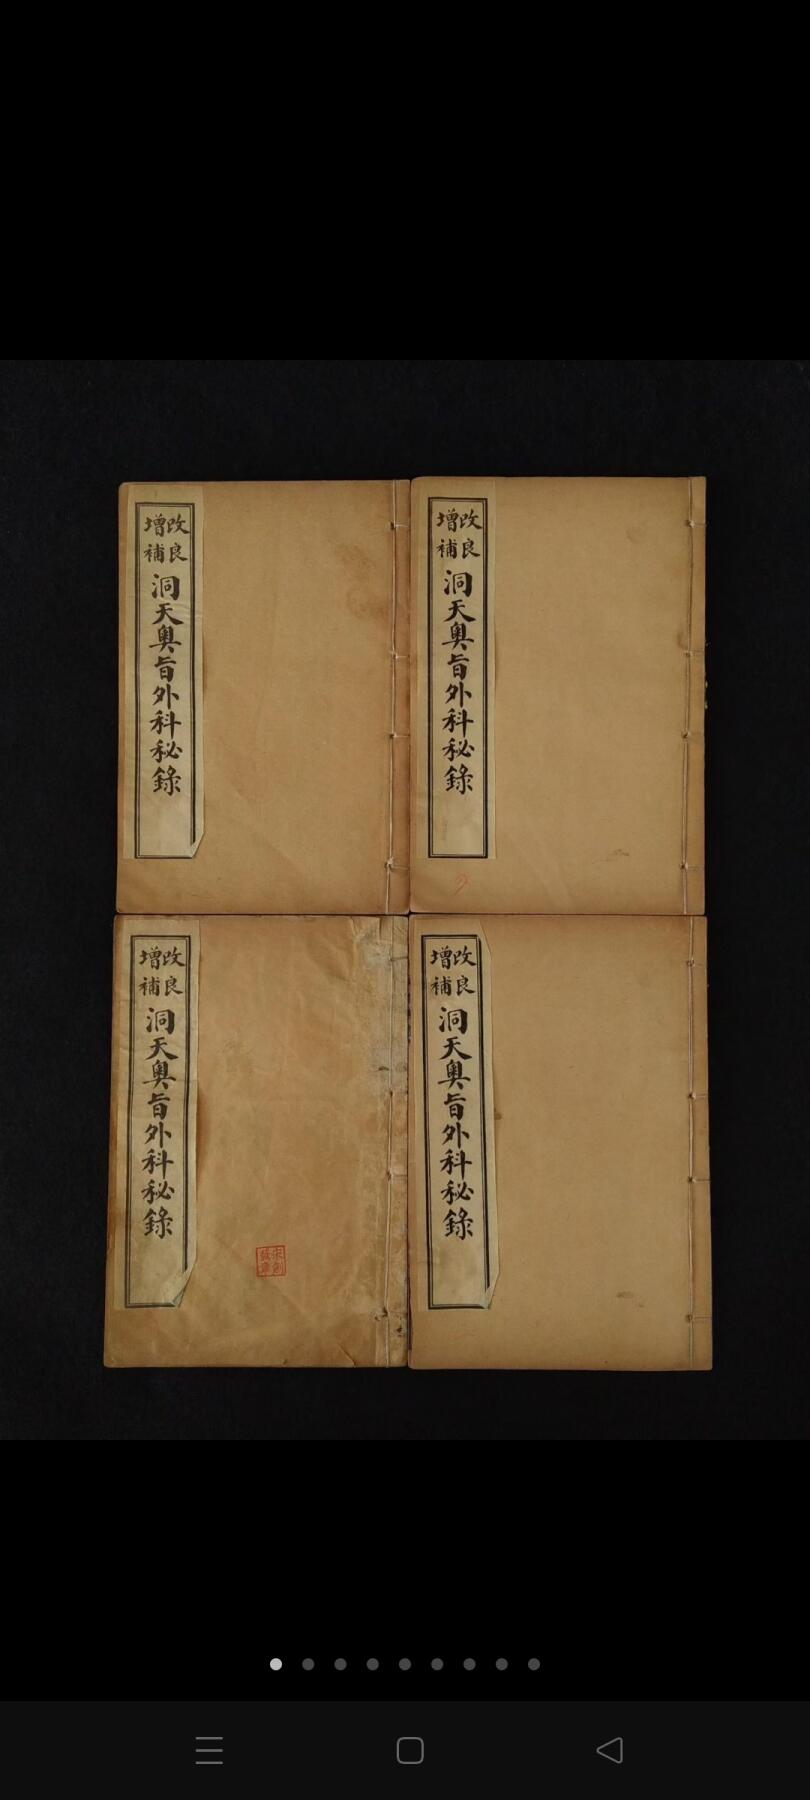 改良
增補
洞天奥旨外科秘錄
改良
增補
洞天奥旨外科秘錄
改良
增補
洞天奥旨外科秘錄
改良
增補
洞天奥旨外科秘錄